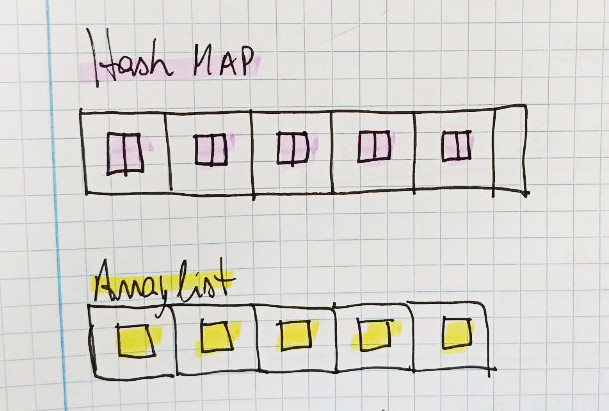 Hash MAP
Array list